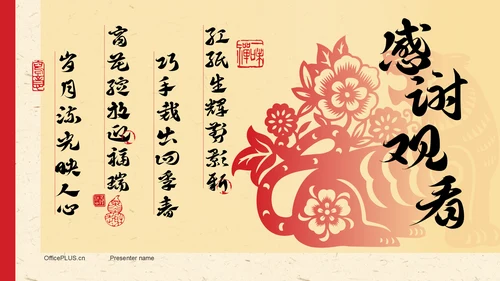 感谢观看
红纸生辉剪影新
巧手裁出四季春
窗花绽放迎福瑞
岁月流光映人心
OfficePLUS.cn
Presenter name